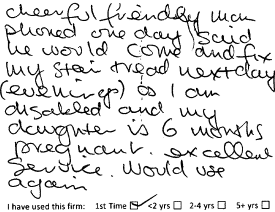 cheerful friendly man
phoned one day, said
he would come and fix
my stair tread next day
(evenings) as I am
disabled and my
daughter is 6 months
pregnant. excellent
Service. Would use
again
I have used this firm: 1st Time ☑ <2 yrs ☐ 2-4 yrs ☐ 5+ yrs ☐